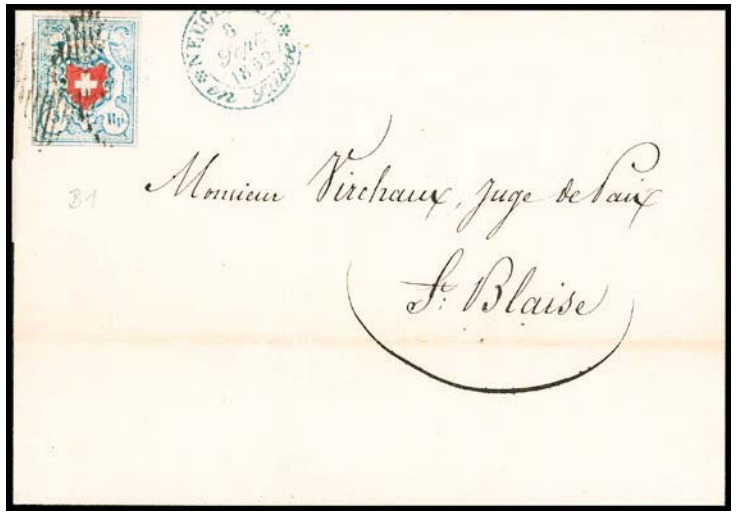 NEUCHATEL
6
Sept.
1852
en Suisse
5 Rp.
B1
Monsieur Virchaux, Juge de Paix
St. Blaise